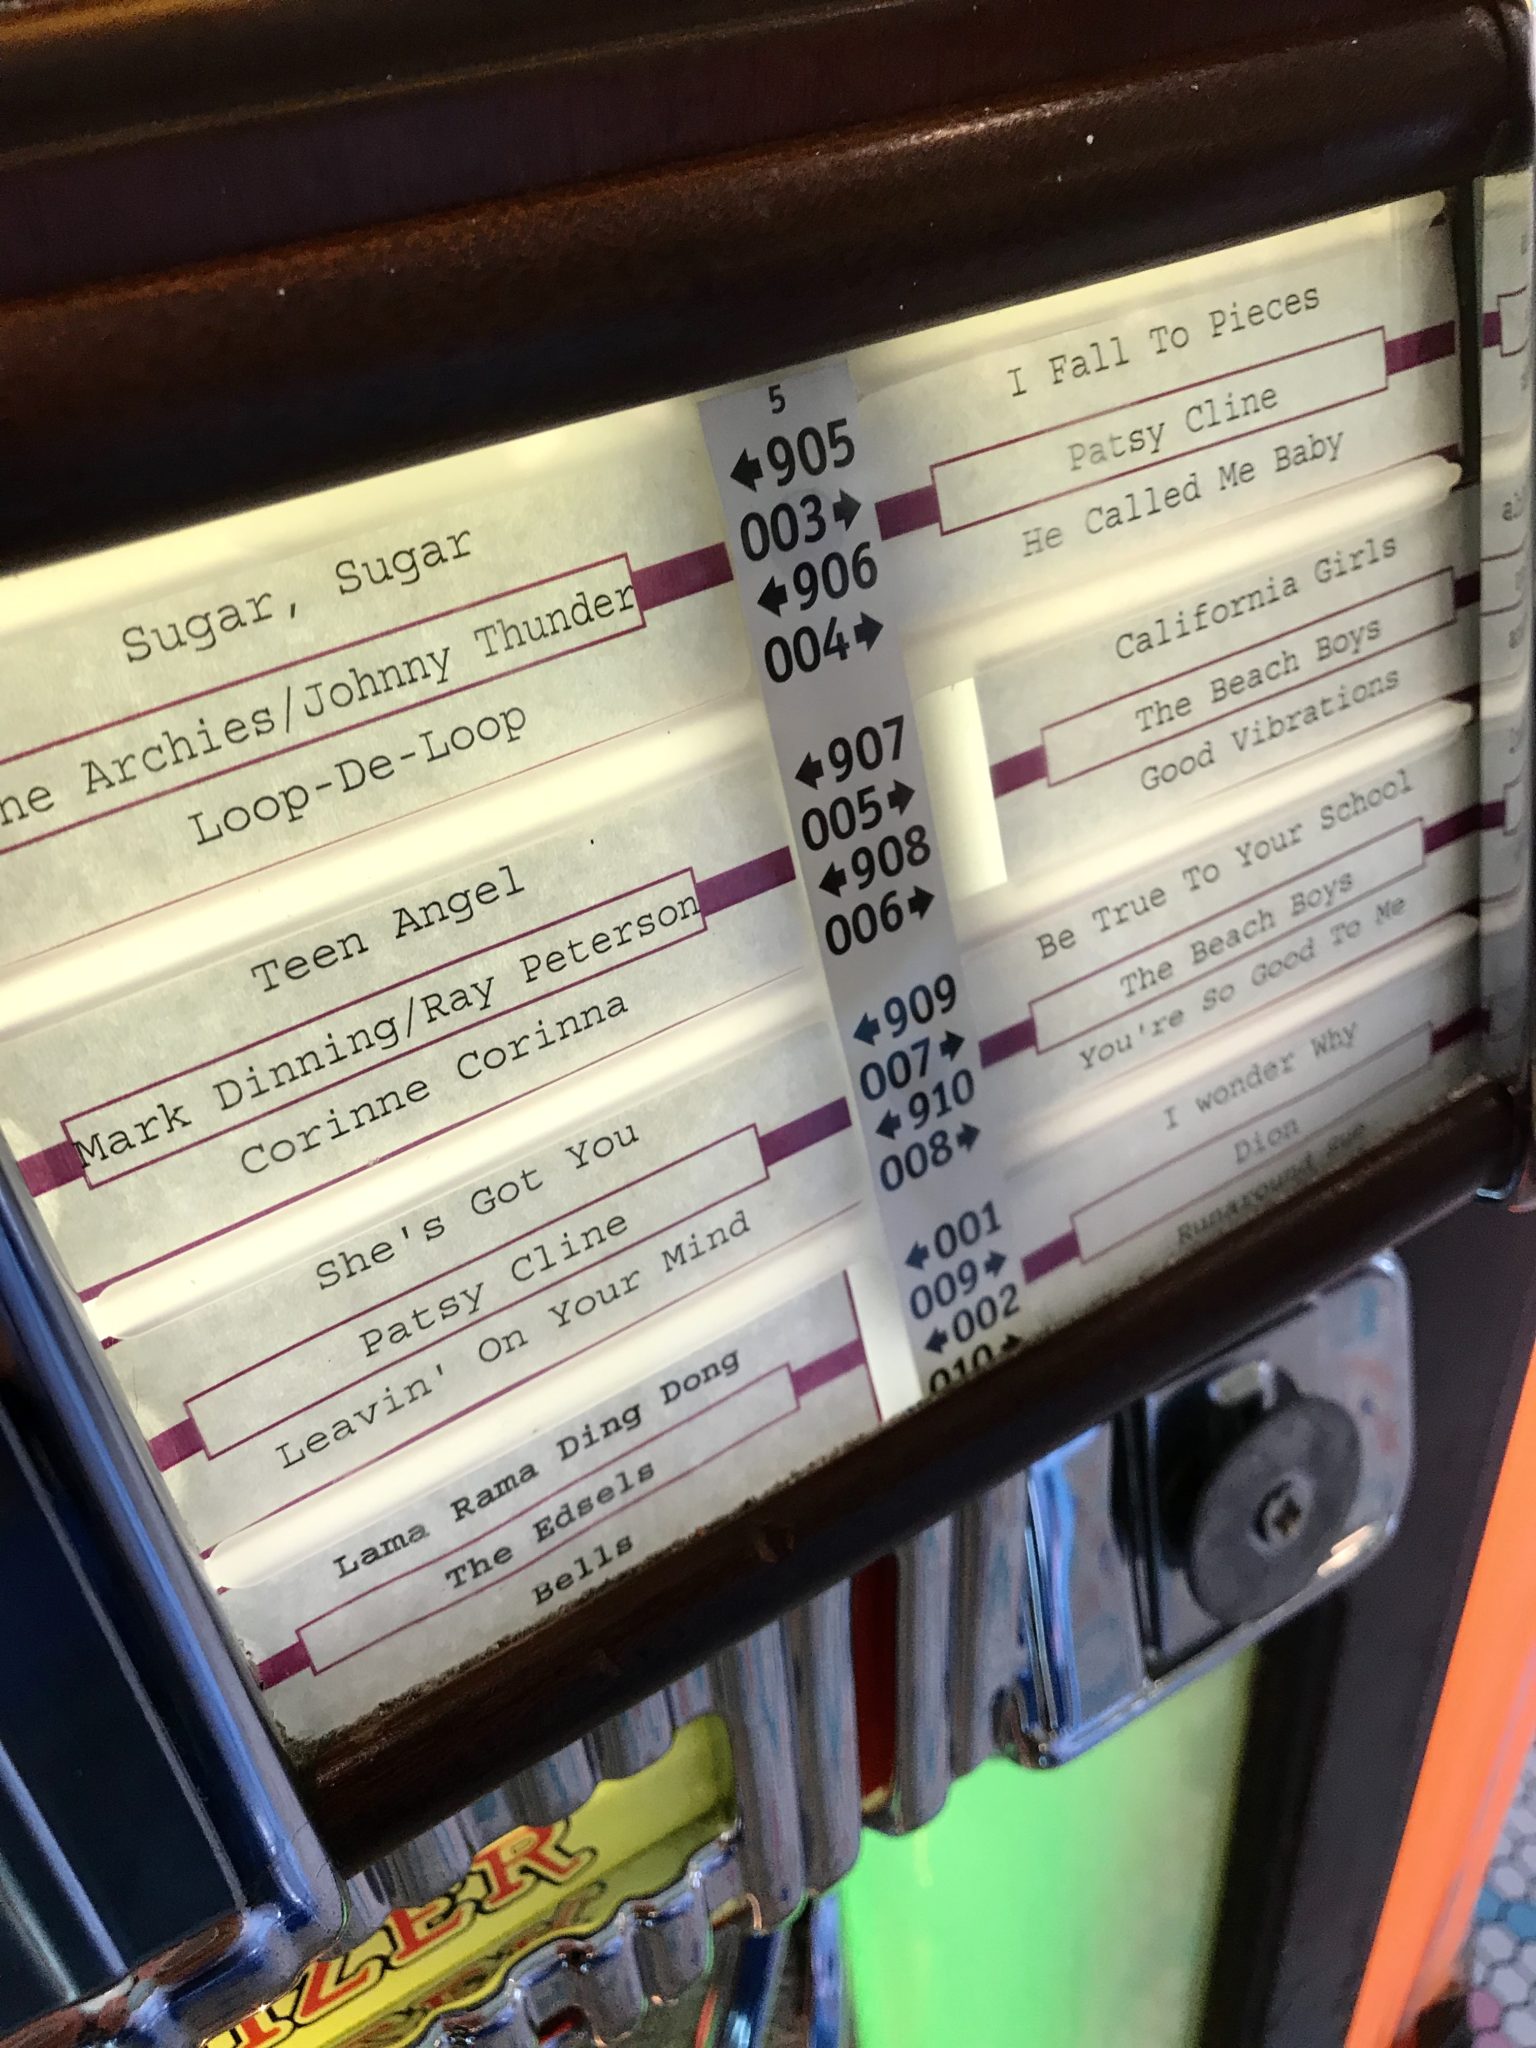 Sugar, Sugar
Archies/Johnny Thunder
Loop-De-Loop
Teen Angel
Mark Dinning/Ray Peterson
Corinne Corinna
She's Got You
Patsy Cline
Leavin' On Your Mind
Lama Rama Ding Dong
The Edsels
Bells
5
←905
003→
←906
004→
←907
005→
←908
006→
←909
007→
←910
008→
←001
009→
←002
010→
I Fall To Pieces
Patsy Cline
He Called Me Baby
California Girls
The Beach Boys
Good Vibrations
Be True To Your School
The Beach Boys
You're So Good To Me
I wonder Why
Dion
Runaround sue